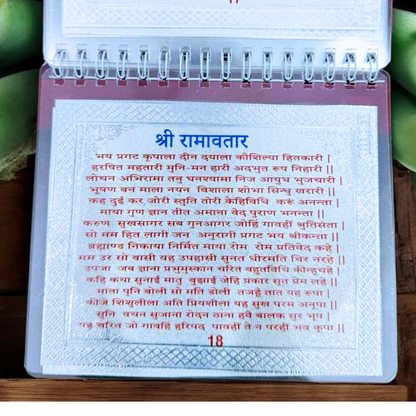 17
श्री रामावतार
भय प्रगट कृपाला दीन दयाला कौशिल्या हितकारी |
हरषित महतारी मुनि-मन हारी अदभुत रूप निहारी ||
लोचन अभिरामा तनु घनश्यामा निज आयुध भुजचारी |
भूषण बन माला नयन विशाला शोभा सिन्धु खरारी ||
कह दुई कर जोरी स्तुति तोरी केहिविधि करूं अनन्ता |
माया गुण ज्ञान तीत अमाना वेद पुराण भनन्ता ||
करुण सुखसागर सब गुनआगर जोहिं गावहीं श्रुतिसंता |
सो मम हित लागी जन अनुरागी प्रगट भय श्रीकन्ता ||
ब्रह्माण्ड निकाया निर्मित माया रोम रोम प्रतिवेद कहे |
मम उर सो वासी यह उपहासी सुनत धीरमति थिर नरहे ||
उपजा जब ज्ञाना प्रभुमुस्काना चरित बहुतविधि कीन्हचहे |
कहि कथा सुनाई मातु बुझाई जेहि प्रकार सुत प्रेम लहे |
माता पुनि बोली सो मति डोली तजहुँ तात यह रूपा |
कीजे शिशुलीला अति प्रियशीला यह सुख परम अनूपा ||
सुनि वचन सुजाना रोदन ठाना हवै बालक सुर भूप |
यह चरित जो गावहिं हरिपद पावहीं ते न परही भव कूपा ||
18